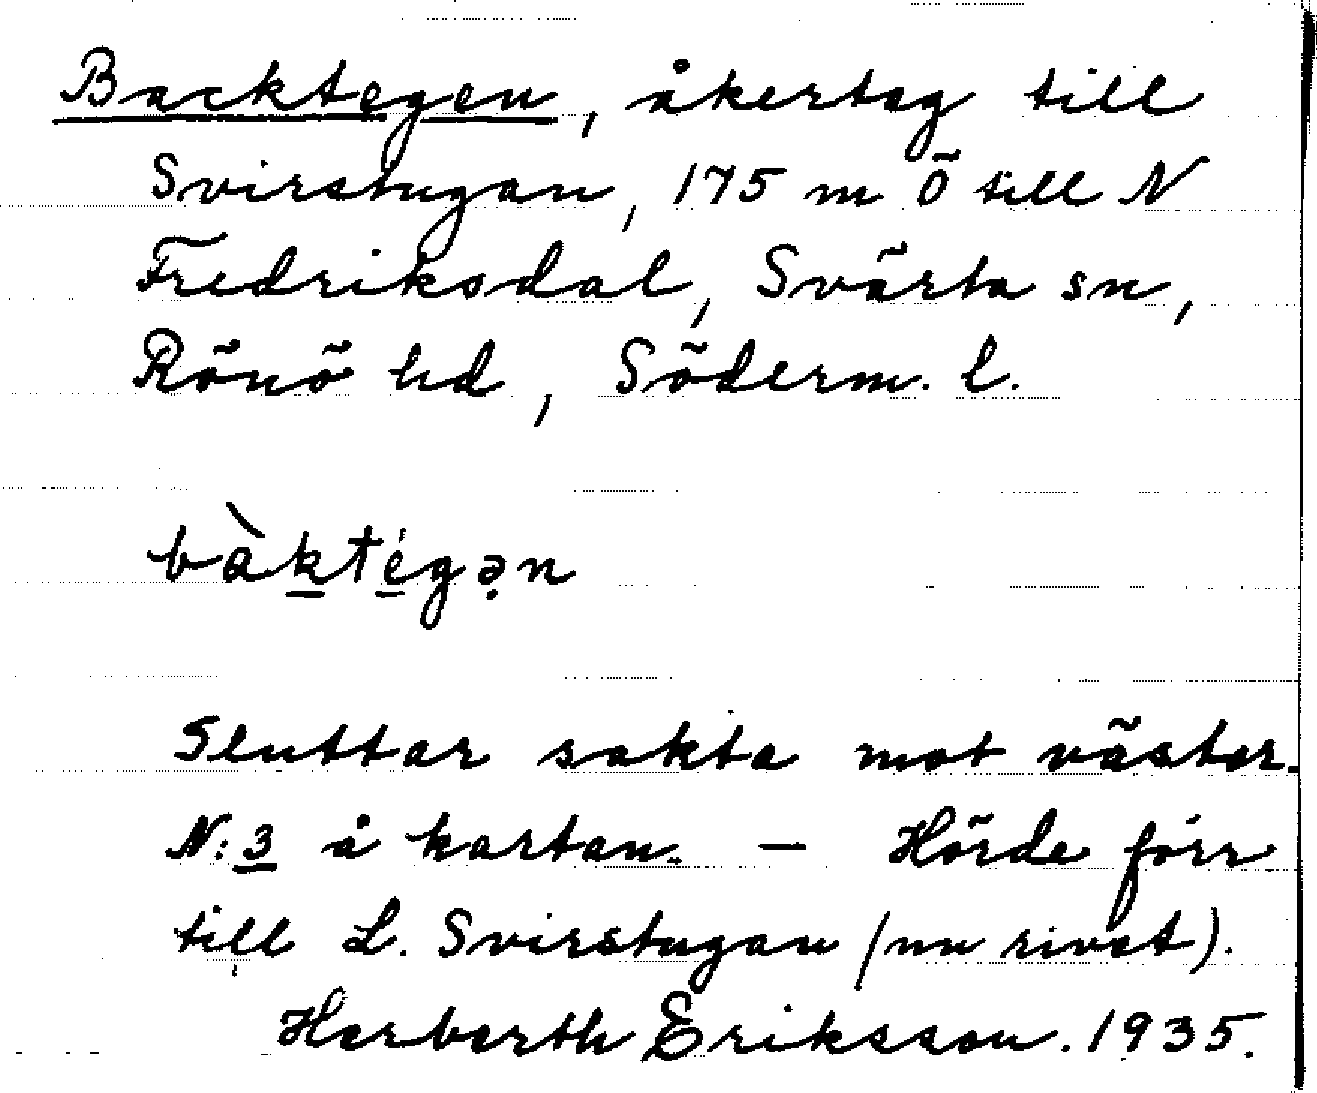 Backtegen, åkerteg till
Svirstugan, 175 m Ö till N
Fredriksdal, Svärta sn,
Rönö hd, Söderm. l.
bàktégən
Sluttar sakta mot väster.
N:3 å kartan. — Hörde förr
till L. Svirstugan (nu rivet).
Herberth Eriksson. 1935.